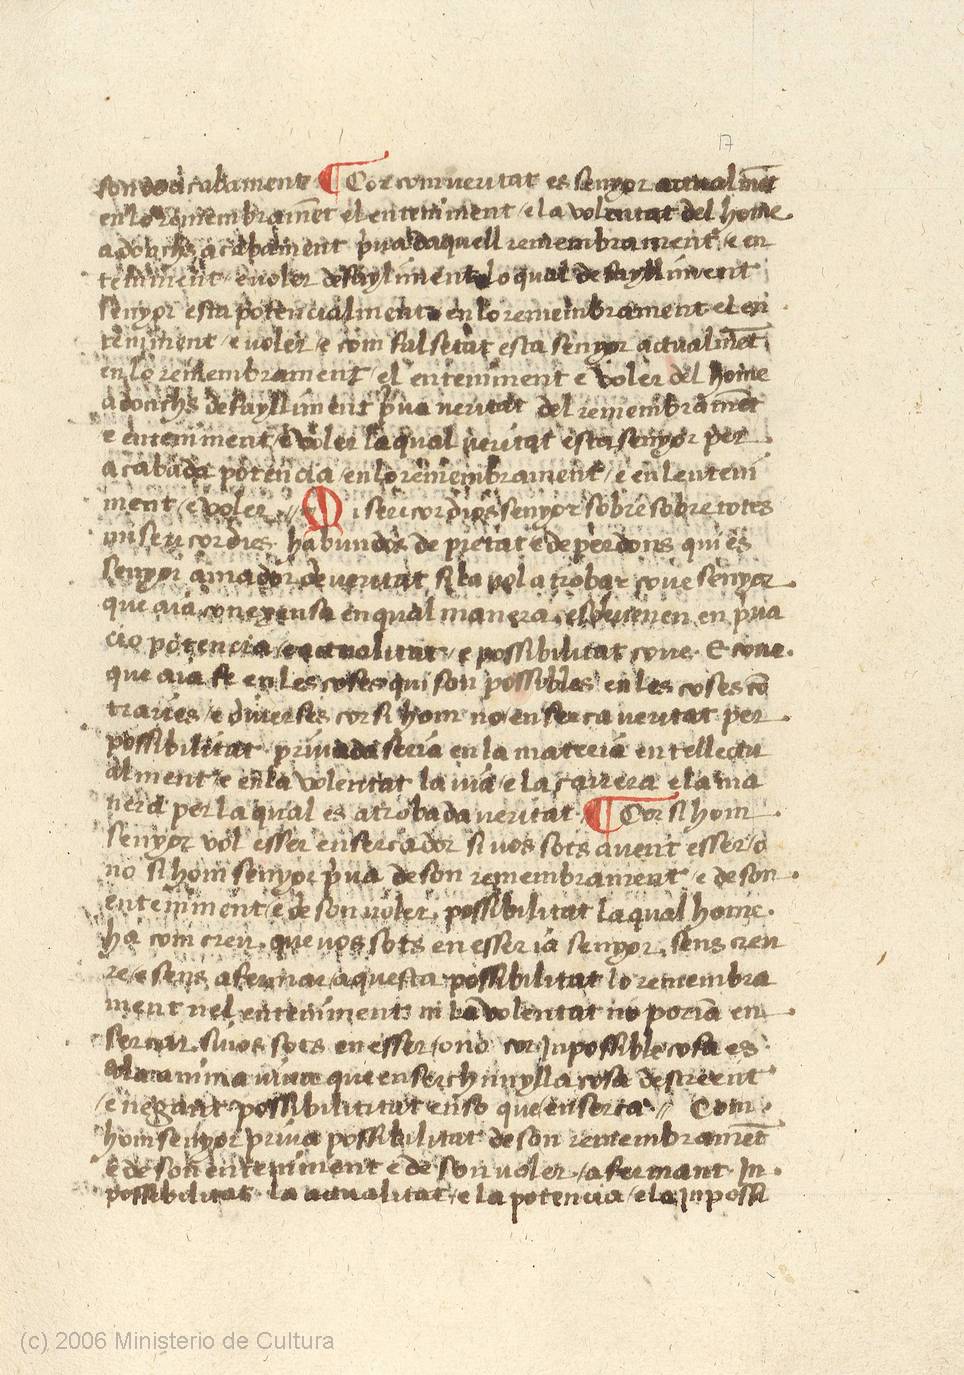 17
son acabament ¶ Cor com veritat es senyor actualmēt
en lo remembramēt el enteniment / e la volentat del home
adonchs acabament pͥua daquell remembrament / e en
teniment / e voler defayliment lo qual defaylliment
senyor esta potencialment en lo remembrament el en
teniment / e voler / e com falsetat esta senyor actualmēt
en lo remembrament / el enteniment e voler del home
adonchs defaylliment pͥua veritat del remembramēt
e enteniment / e voler la qual veritat esta senyor per
acabada potencia / en lo remembrament / e en lenteni
ment / e voler // Misericordios senyor sobre sobre totes
misericordies habundos de pietat e de perdons qui es
senyor amador de veritat si la vol atrobar coue senyor
que aia conexensa en qual manera esdeuenen en pͥua
cio potencia / e actualitat / e possibilitat coue. E coue
que aia fe en les coses qui son possibles en les coses cō
traries / e diuerses cor si hom no enserca veritat per
possibilitat priuada seria en la materia entellectu
alment / e en la volentat la uia / e la carrera e la ma
nera per la qual es atrobada veritat ¶ Cor si hom
senyor vol esser ensercador si vos sots auent esser / o
no si hom senyor pͥua de son remembrament / e de son
enteniment / e de son voler, possibilitat la qual home
ha com creu, que vos sots en esser ia senyor, sens creu
re / e sens afermar / aquesta possibilitat lo remembra
ment nel enteniment ni la volentat no poriā en
sercar. si vos sots en esser / o no cor inpossible cosa es
a la anima que enserch nuylla cosa descreent
/ e negant possibilitat en so que enserca // Com
hom senyor priua possibilitat de son remembramēt
e de son enteniment e de son voler / afermant in
possibilitat la actualitat / e la potencia / e la inpossi
(c) 2006 Ministerio de Cultura